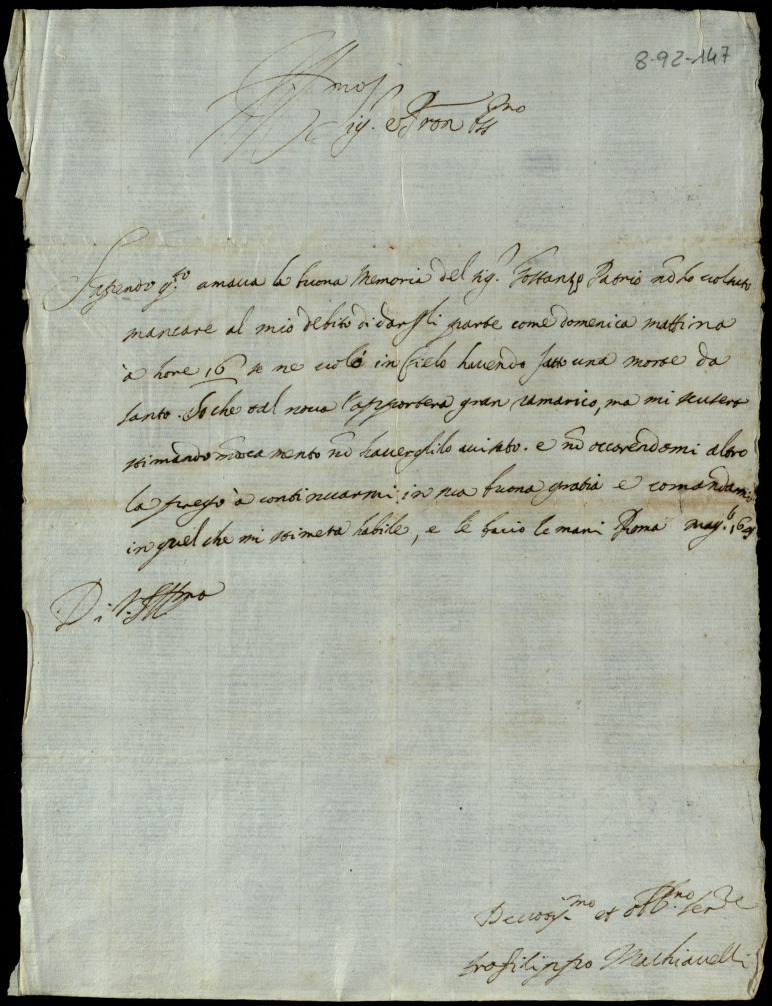 8-92-147
Ill.mo Sig.r e Pron Oss.mo
Sapendo q.to amava la buona memoria del sig.r Gostanzo Patrio nō ho voluto
mancare al mio debito di darli parte come domenica mattina
à hore 16 se ne volò in Cielo havendo fatto una morte da
santo. So che tal nova l'apporterà gran ramarico, ma mi scuserà
stimando mācamento nō haverglilo avisato. e nō occorendomi altro
la prego à continuarmi in sua buona gratia e comandarmi
in quel che mi stimerà habile, e le bacio le mani Roma mag.
Di V.S. Ill.ma
Devotis.mo et obb.mo Ser.re
fro filippo Machiavelli